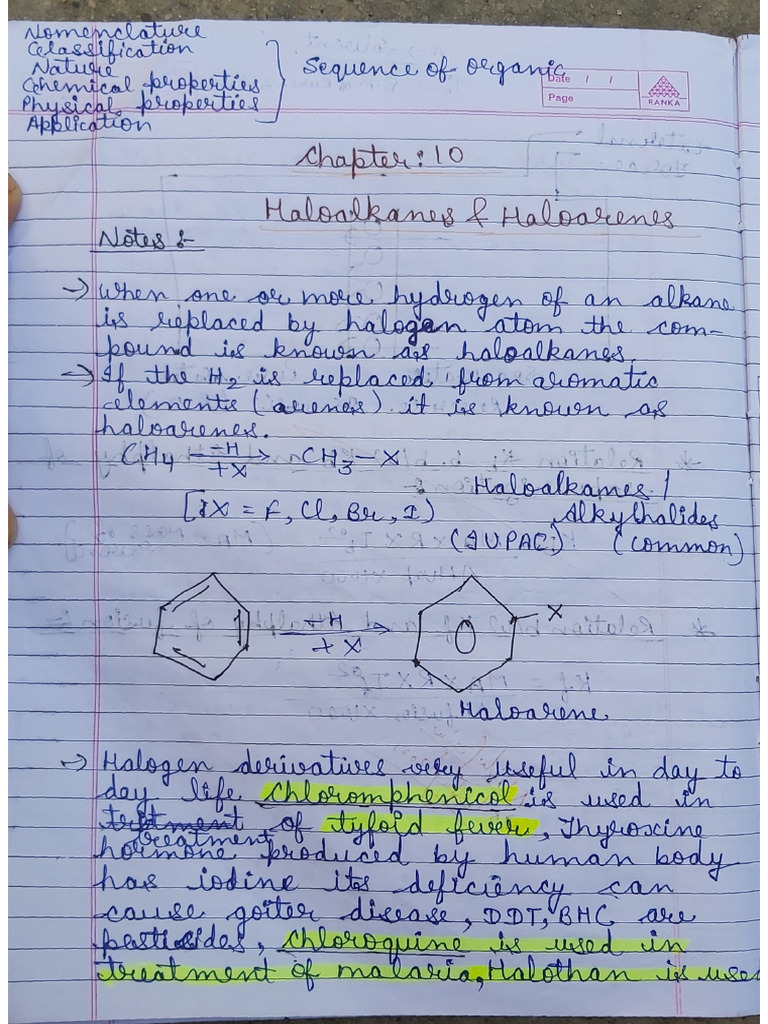 Nomenclature
Classification
Nature
Chemical properties
Physical properties
Application
Sequence of organic
Date / /
Page
RANKA
Chapter: 10
Haloalkanes & Haloarenes
Notes :-
→ When one or more hydrogen of an alkane
is replaced by halogen atom the com-
pound is known as haloalkanes.
→ If the H₂ is replaced from aromatic
elements (arenes) it is known as
haloarenes.
CH₄ -H +X → CH₃-X
Haloalkanes /
[X = F, Cl, Br, I) Alkylhalides
(IUPAC) (common)
-H
+X
X
Haloarene
→ Halogen derivatives very useful in day to
day life chloromphenicol is used in
treatment of tyfoid fever, Thyroxine
hormone produced by human body
has iodine its deficiency can
cause goiter disease, DDT, BHC are
pesticides, chloroquine is used in
treatment of malaria, Halothan is used